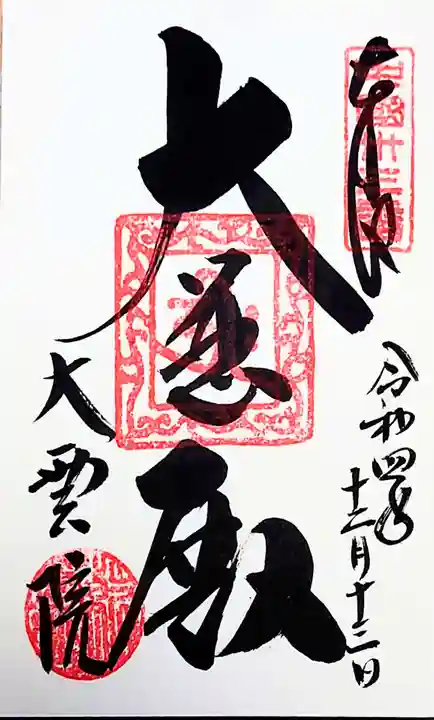 奉拝
令和四年
十二月十二日
大慈殿
大雲院